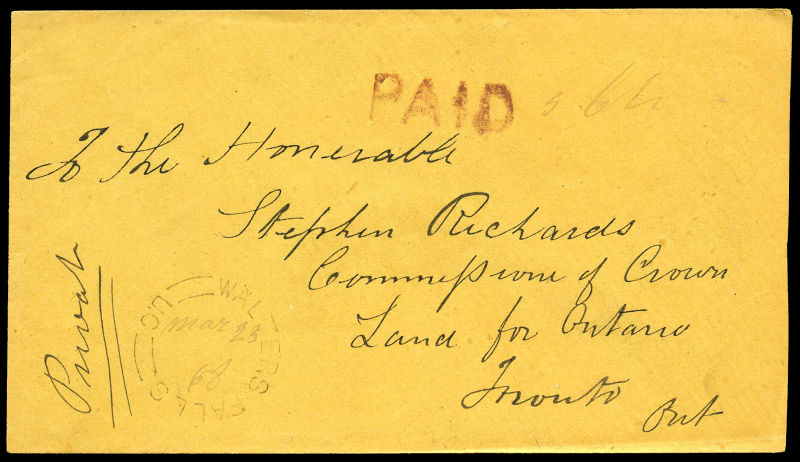 PAID
To the Honerable
Stephen Richards
Commessione of Crown
Land for Ontario
Toronto
Ont
Privat
WALTERS FALLS U.C
mar 23
68